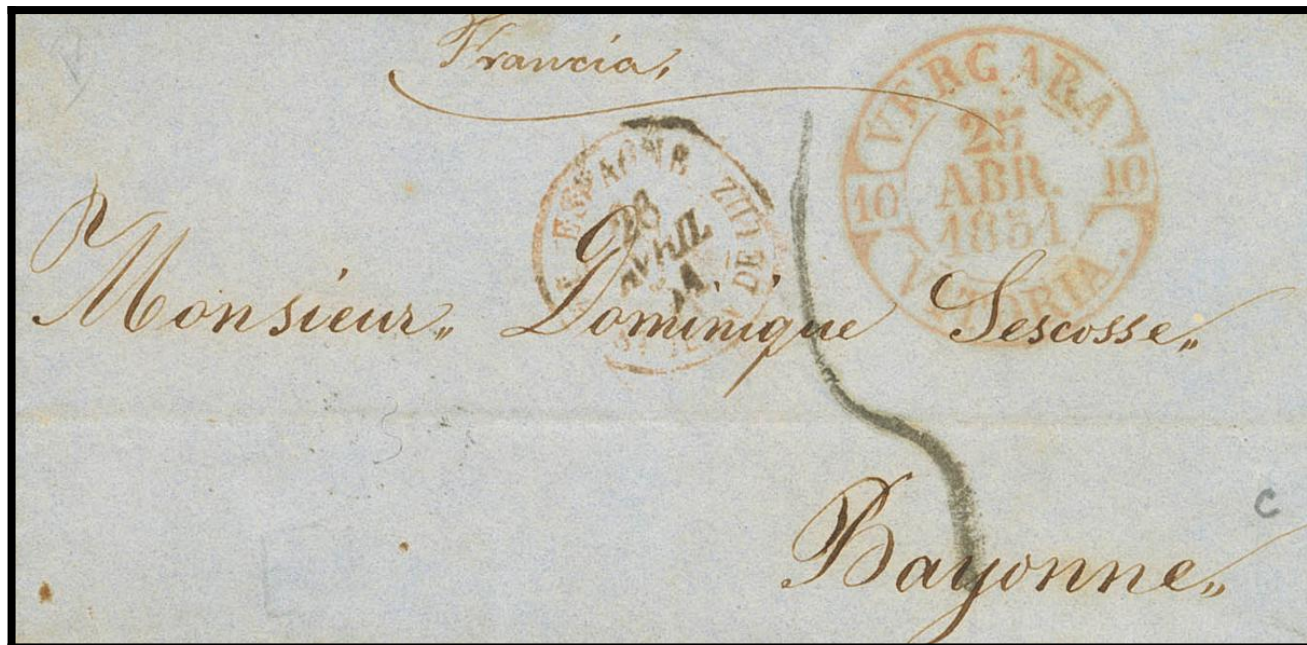 Francia,
VERGARA
10 25 10
ABR.
1851
VITORIA.
ESPAGNE
28
AVRIL
ST DE LUZ
Monsieur„ Dominique Lescosse„
5
Bayonne„
C